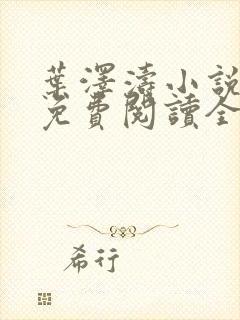 葉澤濤小說
免費閱讀全
希行